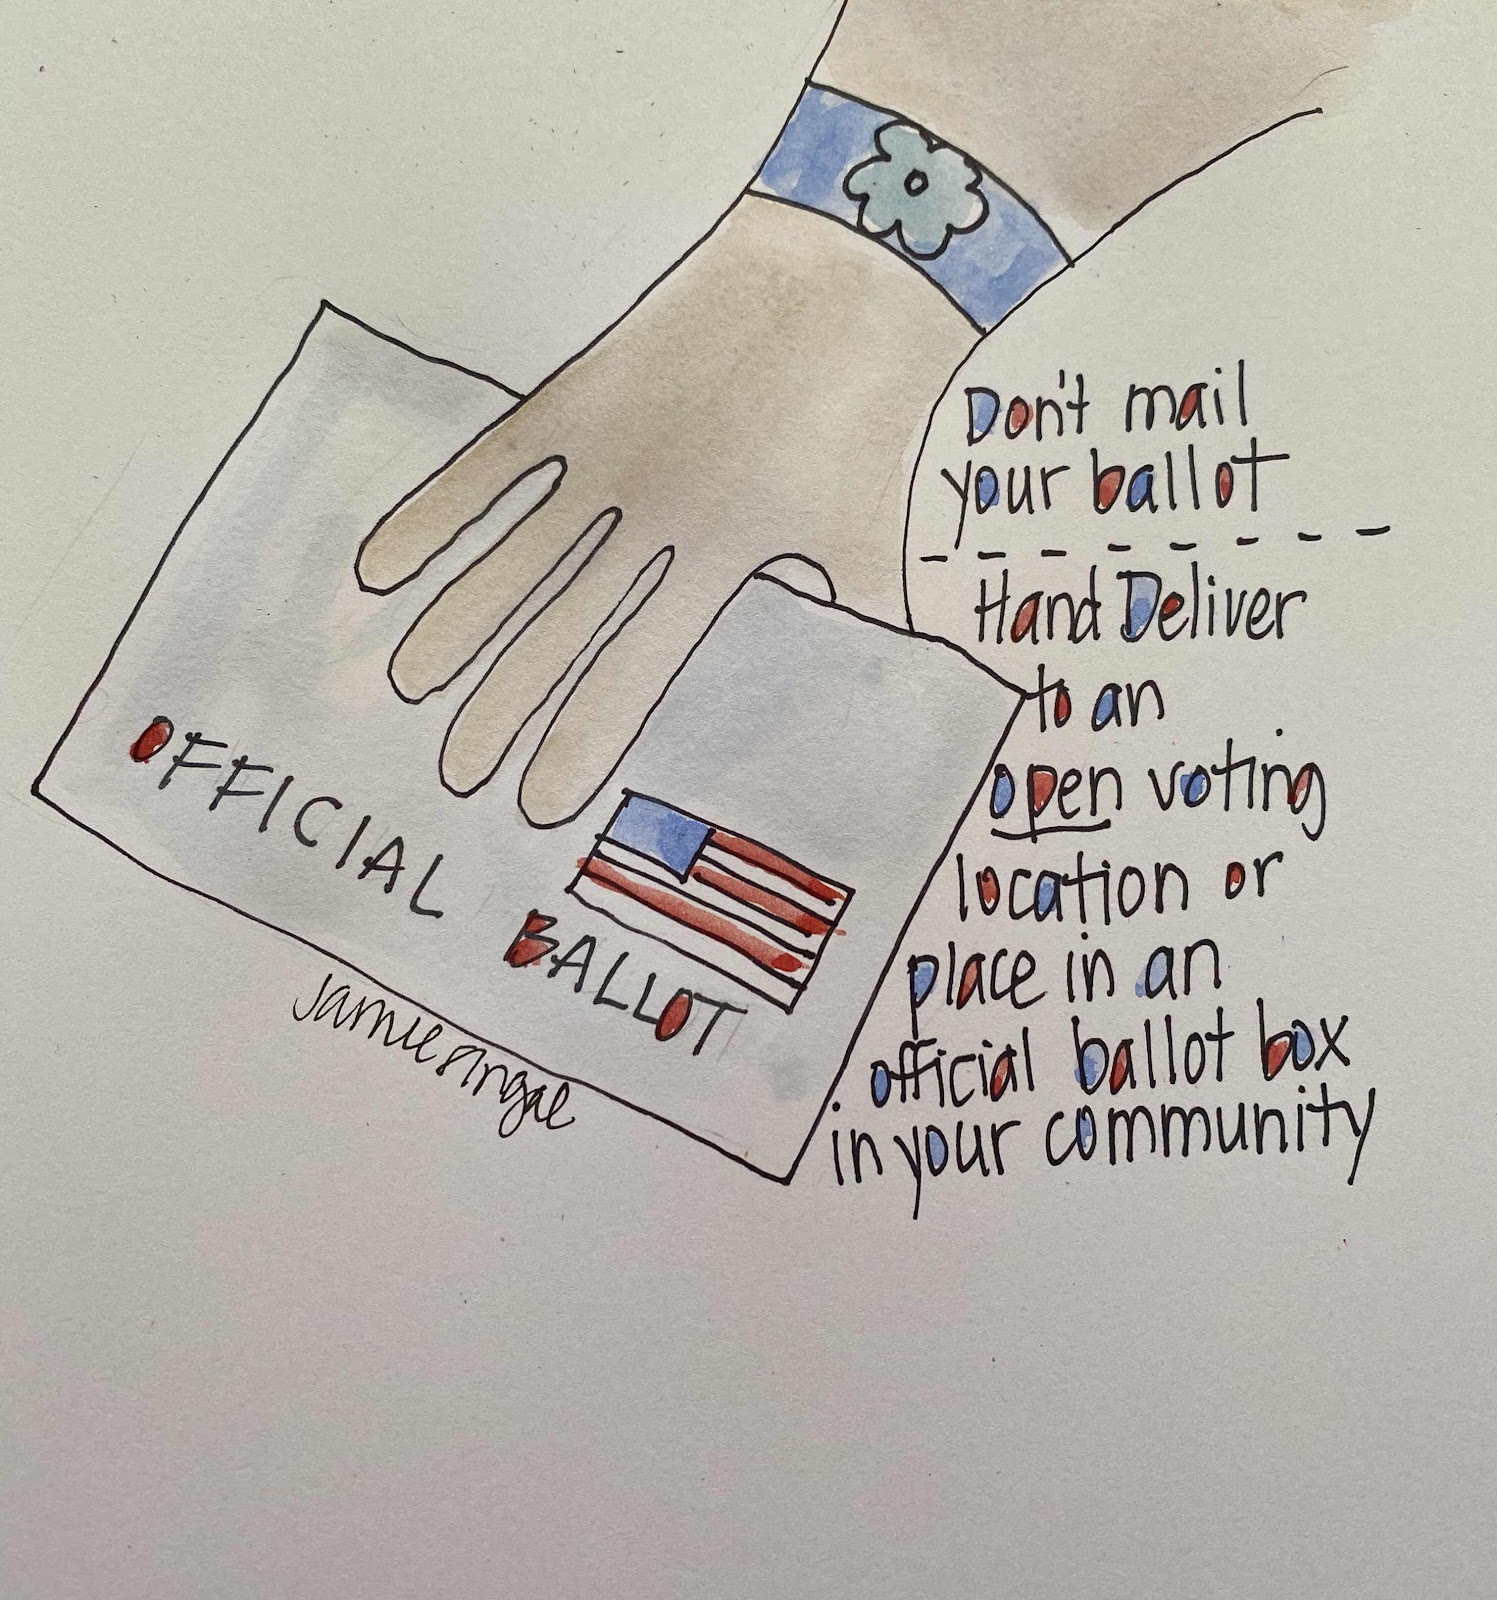 Don't mail
your ballot
Hand Deliver
to an
open voting
location or
place in an
official ballot box
in your community
OFFICIAL BALLOT